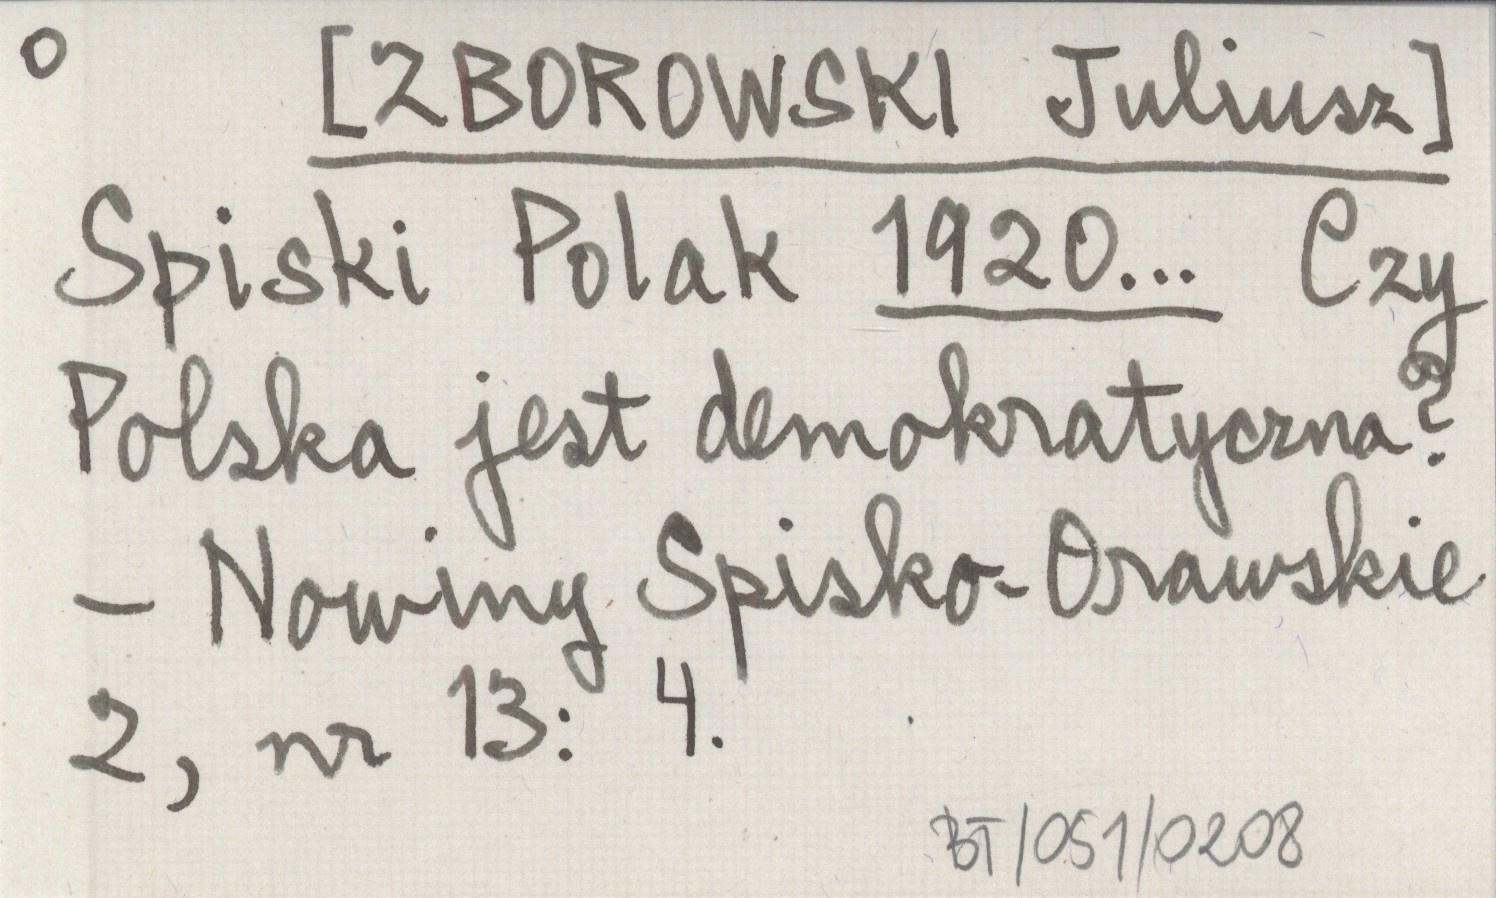 o
[ZBOROWSKI Juliusz]
Spiski Polak 1920... Czy
Polska jest demokratyczna?
– Nowiny Spisko-Orawskie
2, nr 13: 4.
BT/051/0208